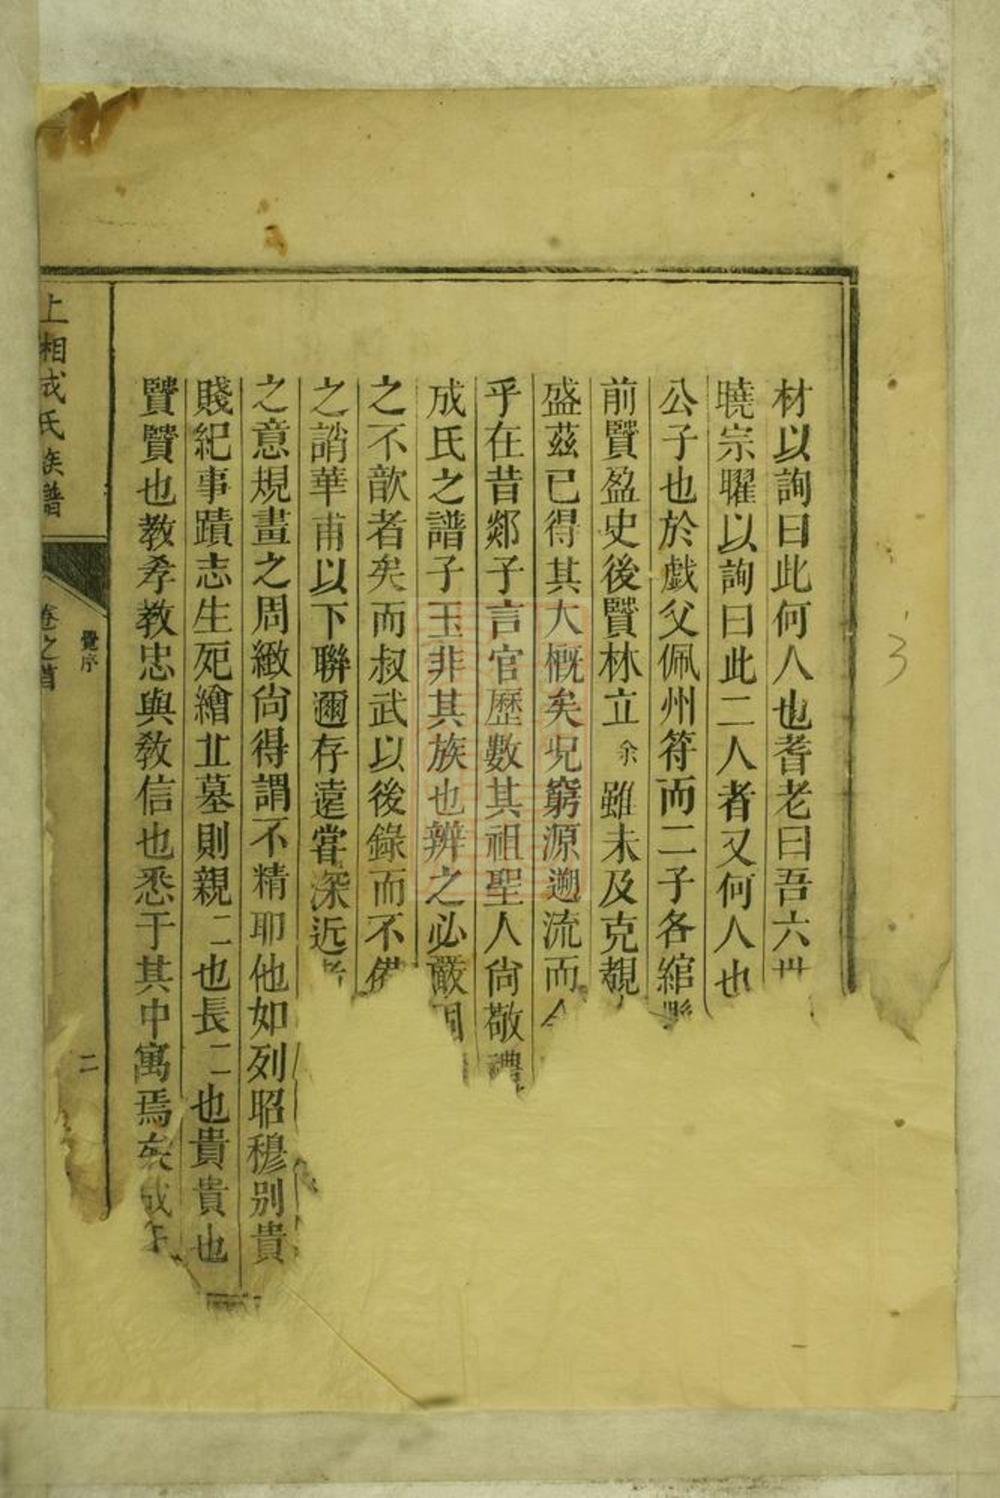 材以詢曰此何人也耆老曰吾六世
曉宗曜以詢曰此二人者又何人也
公子也於戯父佩州符而二子各綰縣
前賢盈史後賢林立余雖未及克覩
盛茲已得其大概矣況窮源遡流而
乎在昔郯子言官歷數其祖聖人尙敬禮
成氏之譜子玉非其族也辨之必嚴
之不歆者矣而叔武以後錄而不備
之誚華甫以下聯邇存遠甞深近
之意規畫之周緻尙得謂不精耶他如列昭穆别貴
賤紀事蹟志生死繪丠墓則親二也長二也貴貴也
賢賢也教孝教忠與敎信也悉于其中寓焉矣成
上湘成氏族譜
卷之首
覺序
二
3